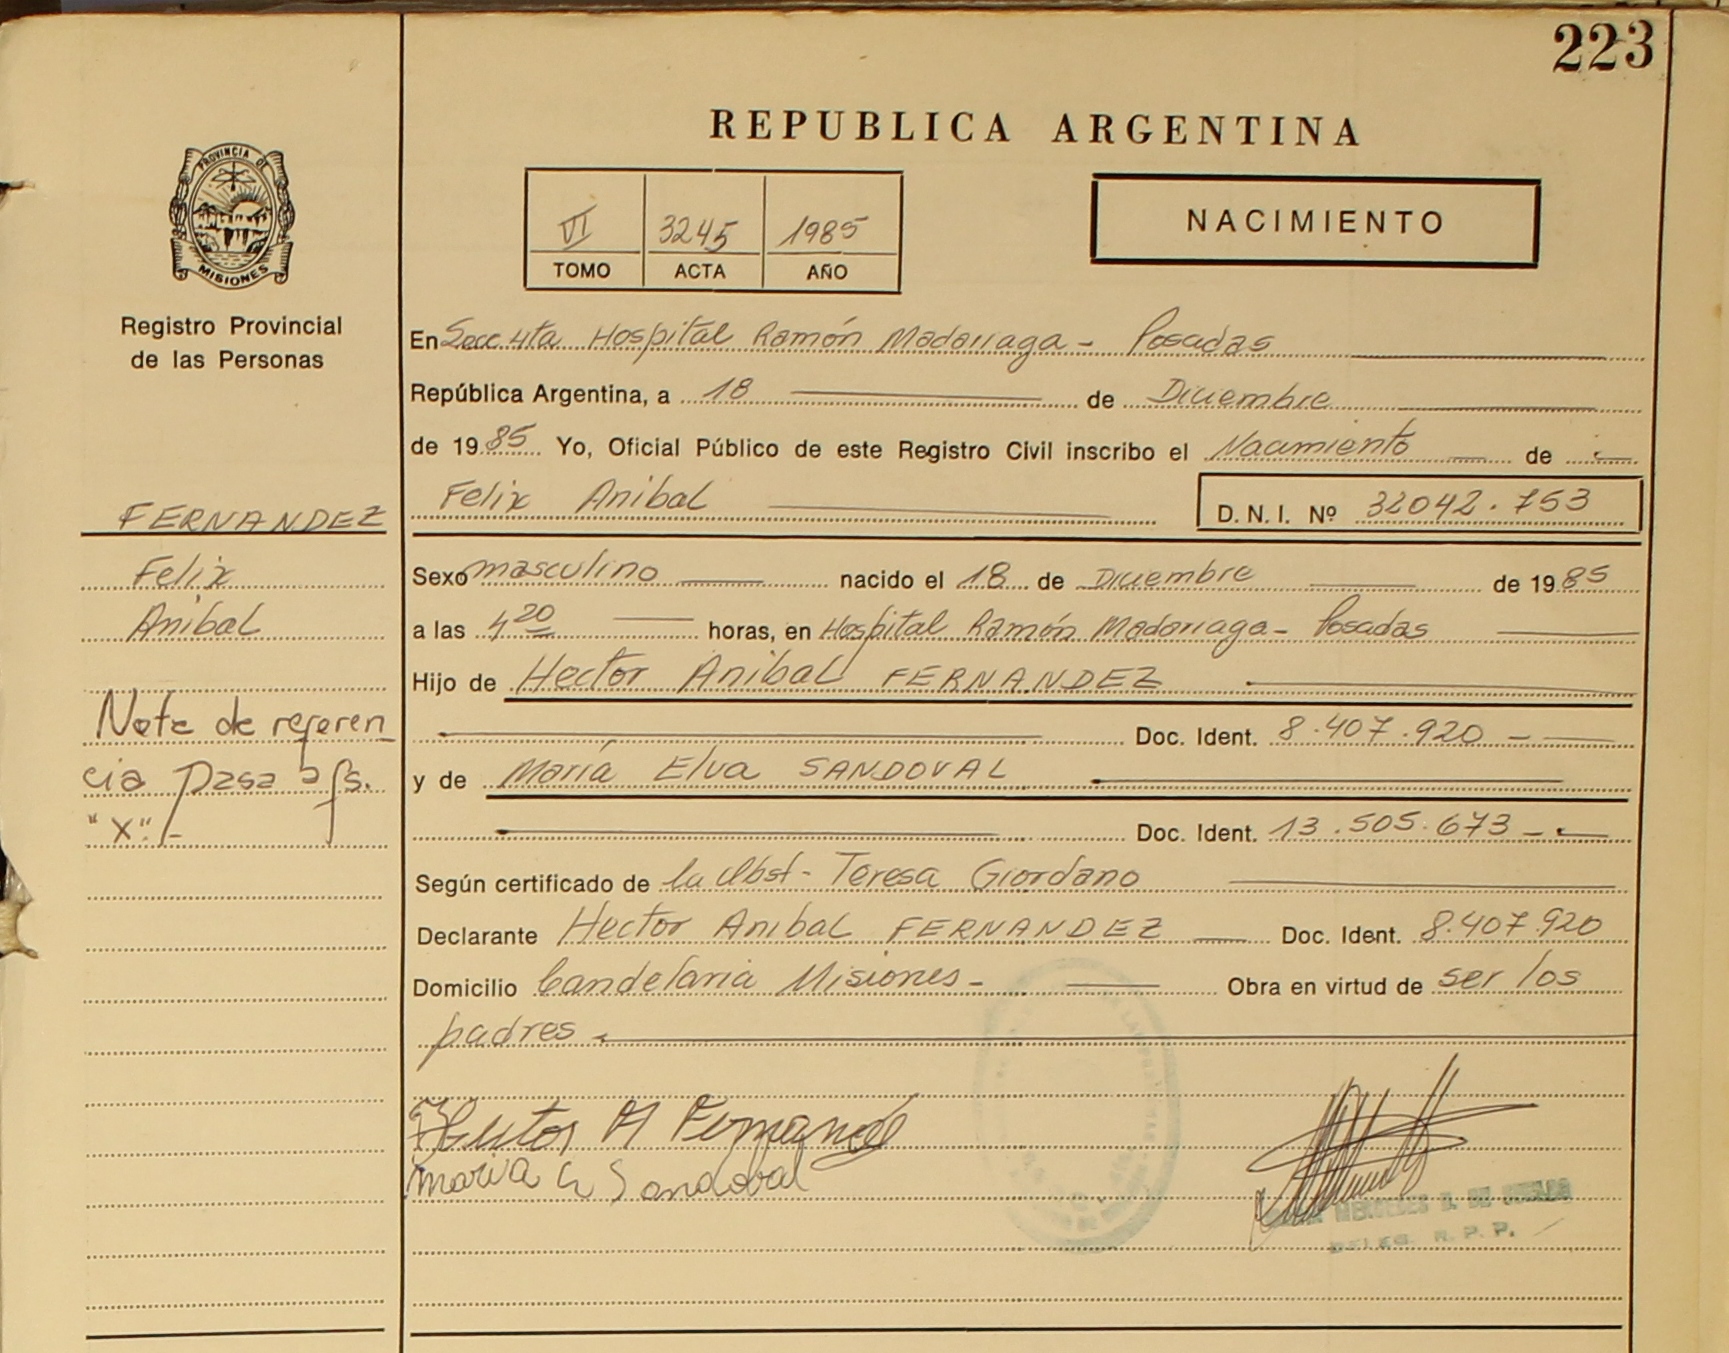 223
REPUBLICA ARGENTINA
PROVINCIA DE
MISIONES
Registro Provincial
de las Personas
VI 3245 1985
TOMO ACTA AÑO
NACIMIENTO
En Secc. 4ta Hospital Ramón Madariaga - Posadas
República Argentina, a 18 de Diciembre
de 1985 Yo, Oficial Público de este Registro Civil inscribo el Nacimiento de
Felix Anibal D. N. I. Nº 32042.753
FERNANDEZ
Felix
Anibal
Nota de referen
cia Pasa a fs.
"X".-
Sexo masculino nacido el 18 de Diciembre de 1985
a las 4 20 horas, en Hospital Ramón Madariaga - Posadas
Hijo de Hector Anibal FERNANDEZ
Doc. Ident. 8.407.920 -
y de María Elva SANDOVAL
Doc. Ident. 13.505.673 -
Según certificado de la Obst- Teresa Giordano
Declarante Hector Anibal FERNANDEZ Doc. Ident. 8.407.920
Domicilio Candelaria Misiones - Obra en virtud de ser los
padres
Hector A Fernandez
Maria E Sandoval
MERCEDES DE
DELEG. R. P. P.